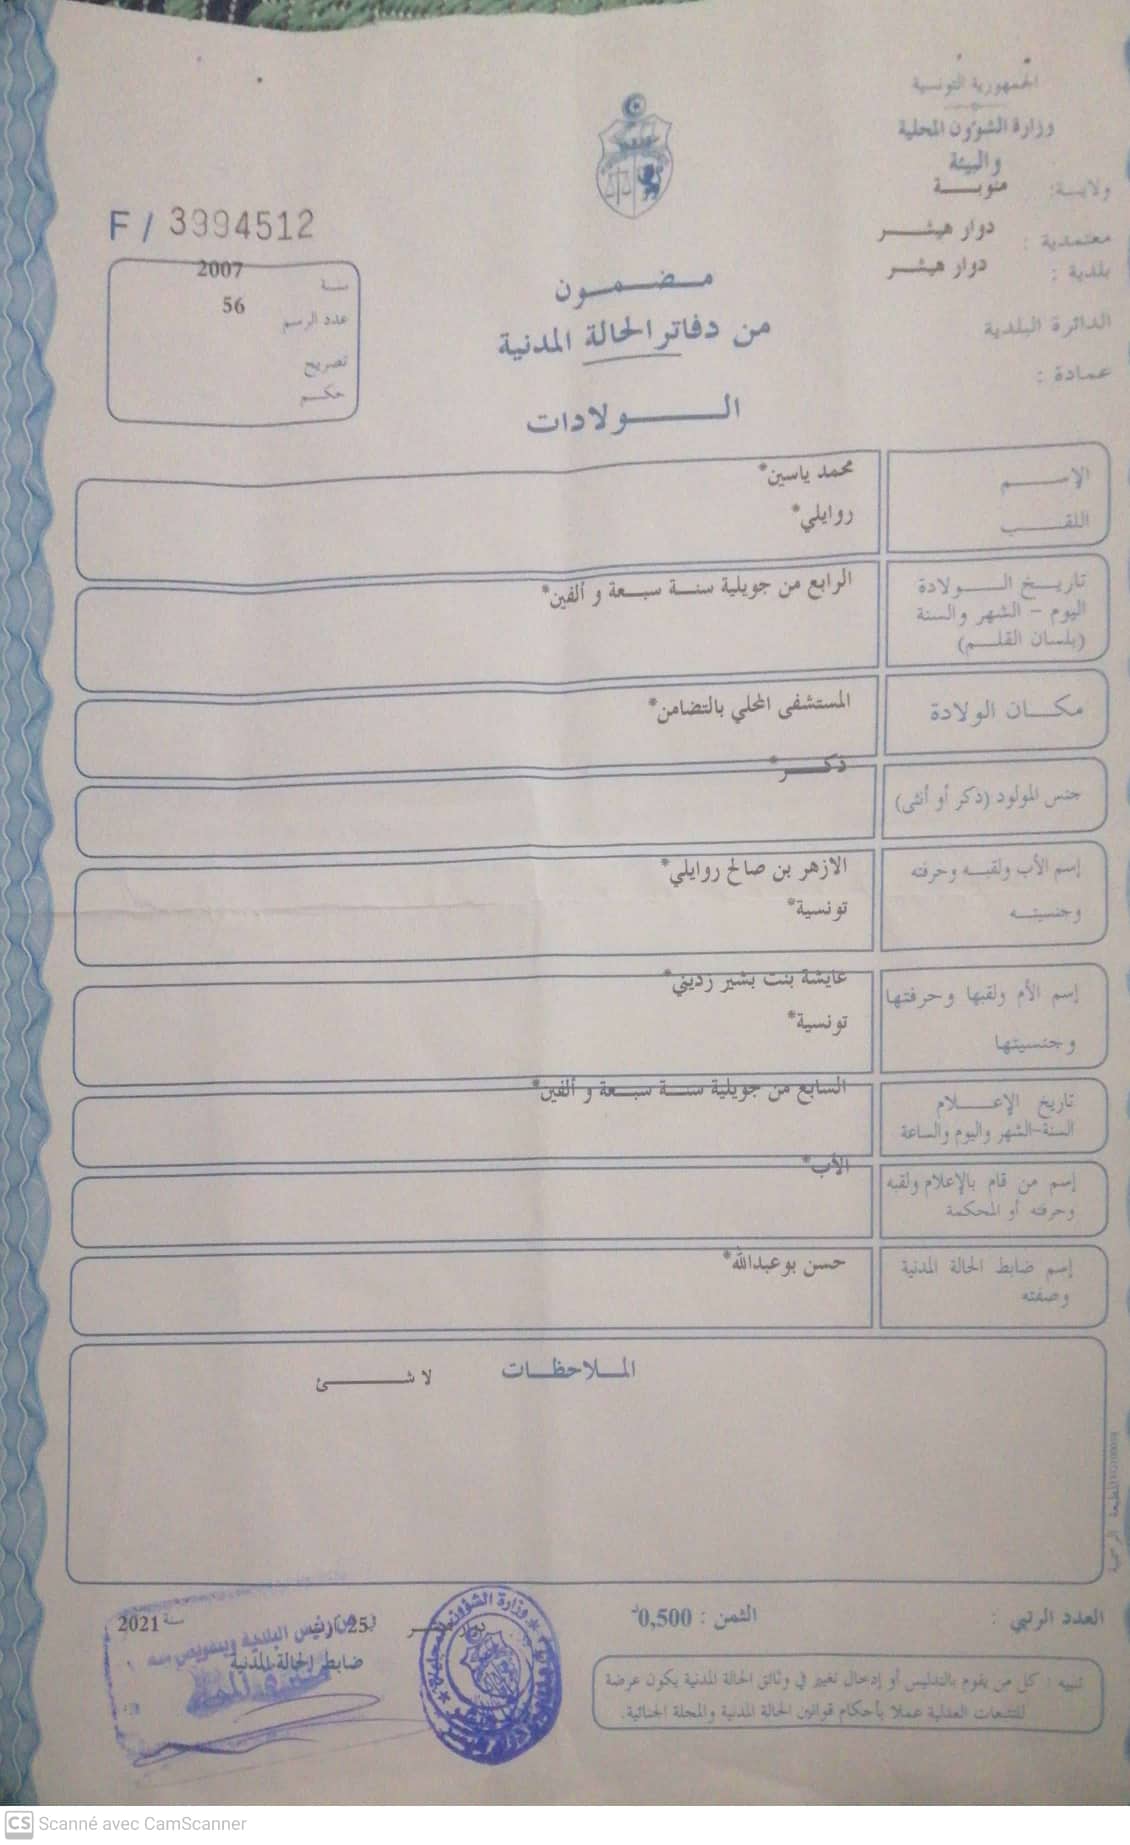 الجمهورية التونسية
وزارة الشؤون المحلية
والبيئة
ولاية: منوبة
معتمدية : دوار هيشر
بلدية : دوار هيشر
الدائرة البلدية
عمادة :
F / 3994512
سنة 2007
عدد الرسم 56
تصريح
حكم
مضمون
من دفاتر الحالة المدنية
الولادات
الإسم محمد ياسين*
اللقب روايلي*
تاريخ الولادة الرابع من جويلية سنة سبعة و ألفين*
اليوم - الشهر والسنة
(بلسان القلم)
مكان الولادة المستشفى المحلي بالتضامن*
جنس المولود (ذكر أو أنثى) ذكر*
إسم الأب ولقبه وحرفته الازهر بن صالح روايلي*
وجنسيته تونسية*
إسم الأم ولقبها وحرفتها عايشة بنت بشير زديني*
وجنسيتها تونسية*
تاريخ الإعلام السابع من جويلية سنة سبعة و ألفين*
السنة-الشهر واليوم والساعة
إسم من قام بالإعلام ولقبه الأب*
وحرفته أو المحكمة
إسم ضابط الحالة المدنية حسن بوعبدالله*
وصفته
الملاحظات
لا شئ
المطبعة الرسمية
العدد الرتبي :
الثمن : 0,500د
25 مارس سنة 2021
عن رئيس البلدية وبتفويض منه
ضابط الحالة المدنية
وزارة الشؤون المحلية
تنبيه : كل من يقوم بالتدليس أو إدخال تغيير في وثائق الحالة المدنية يكون عرضة
للتتبعات العدلية عملا بأحكام قوانين الحالة المدنية والمجلة الجنائية.
CS Scanné avec CamScanner